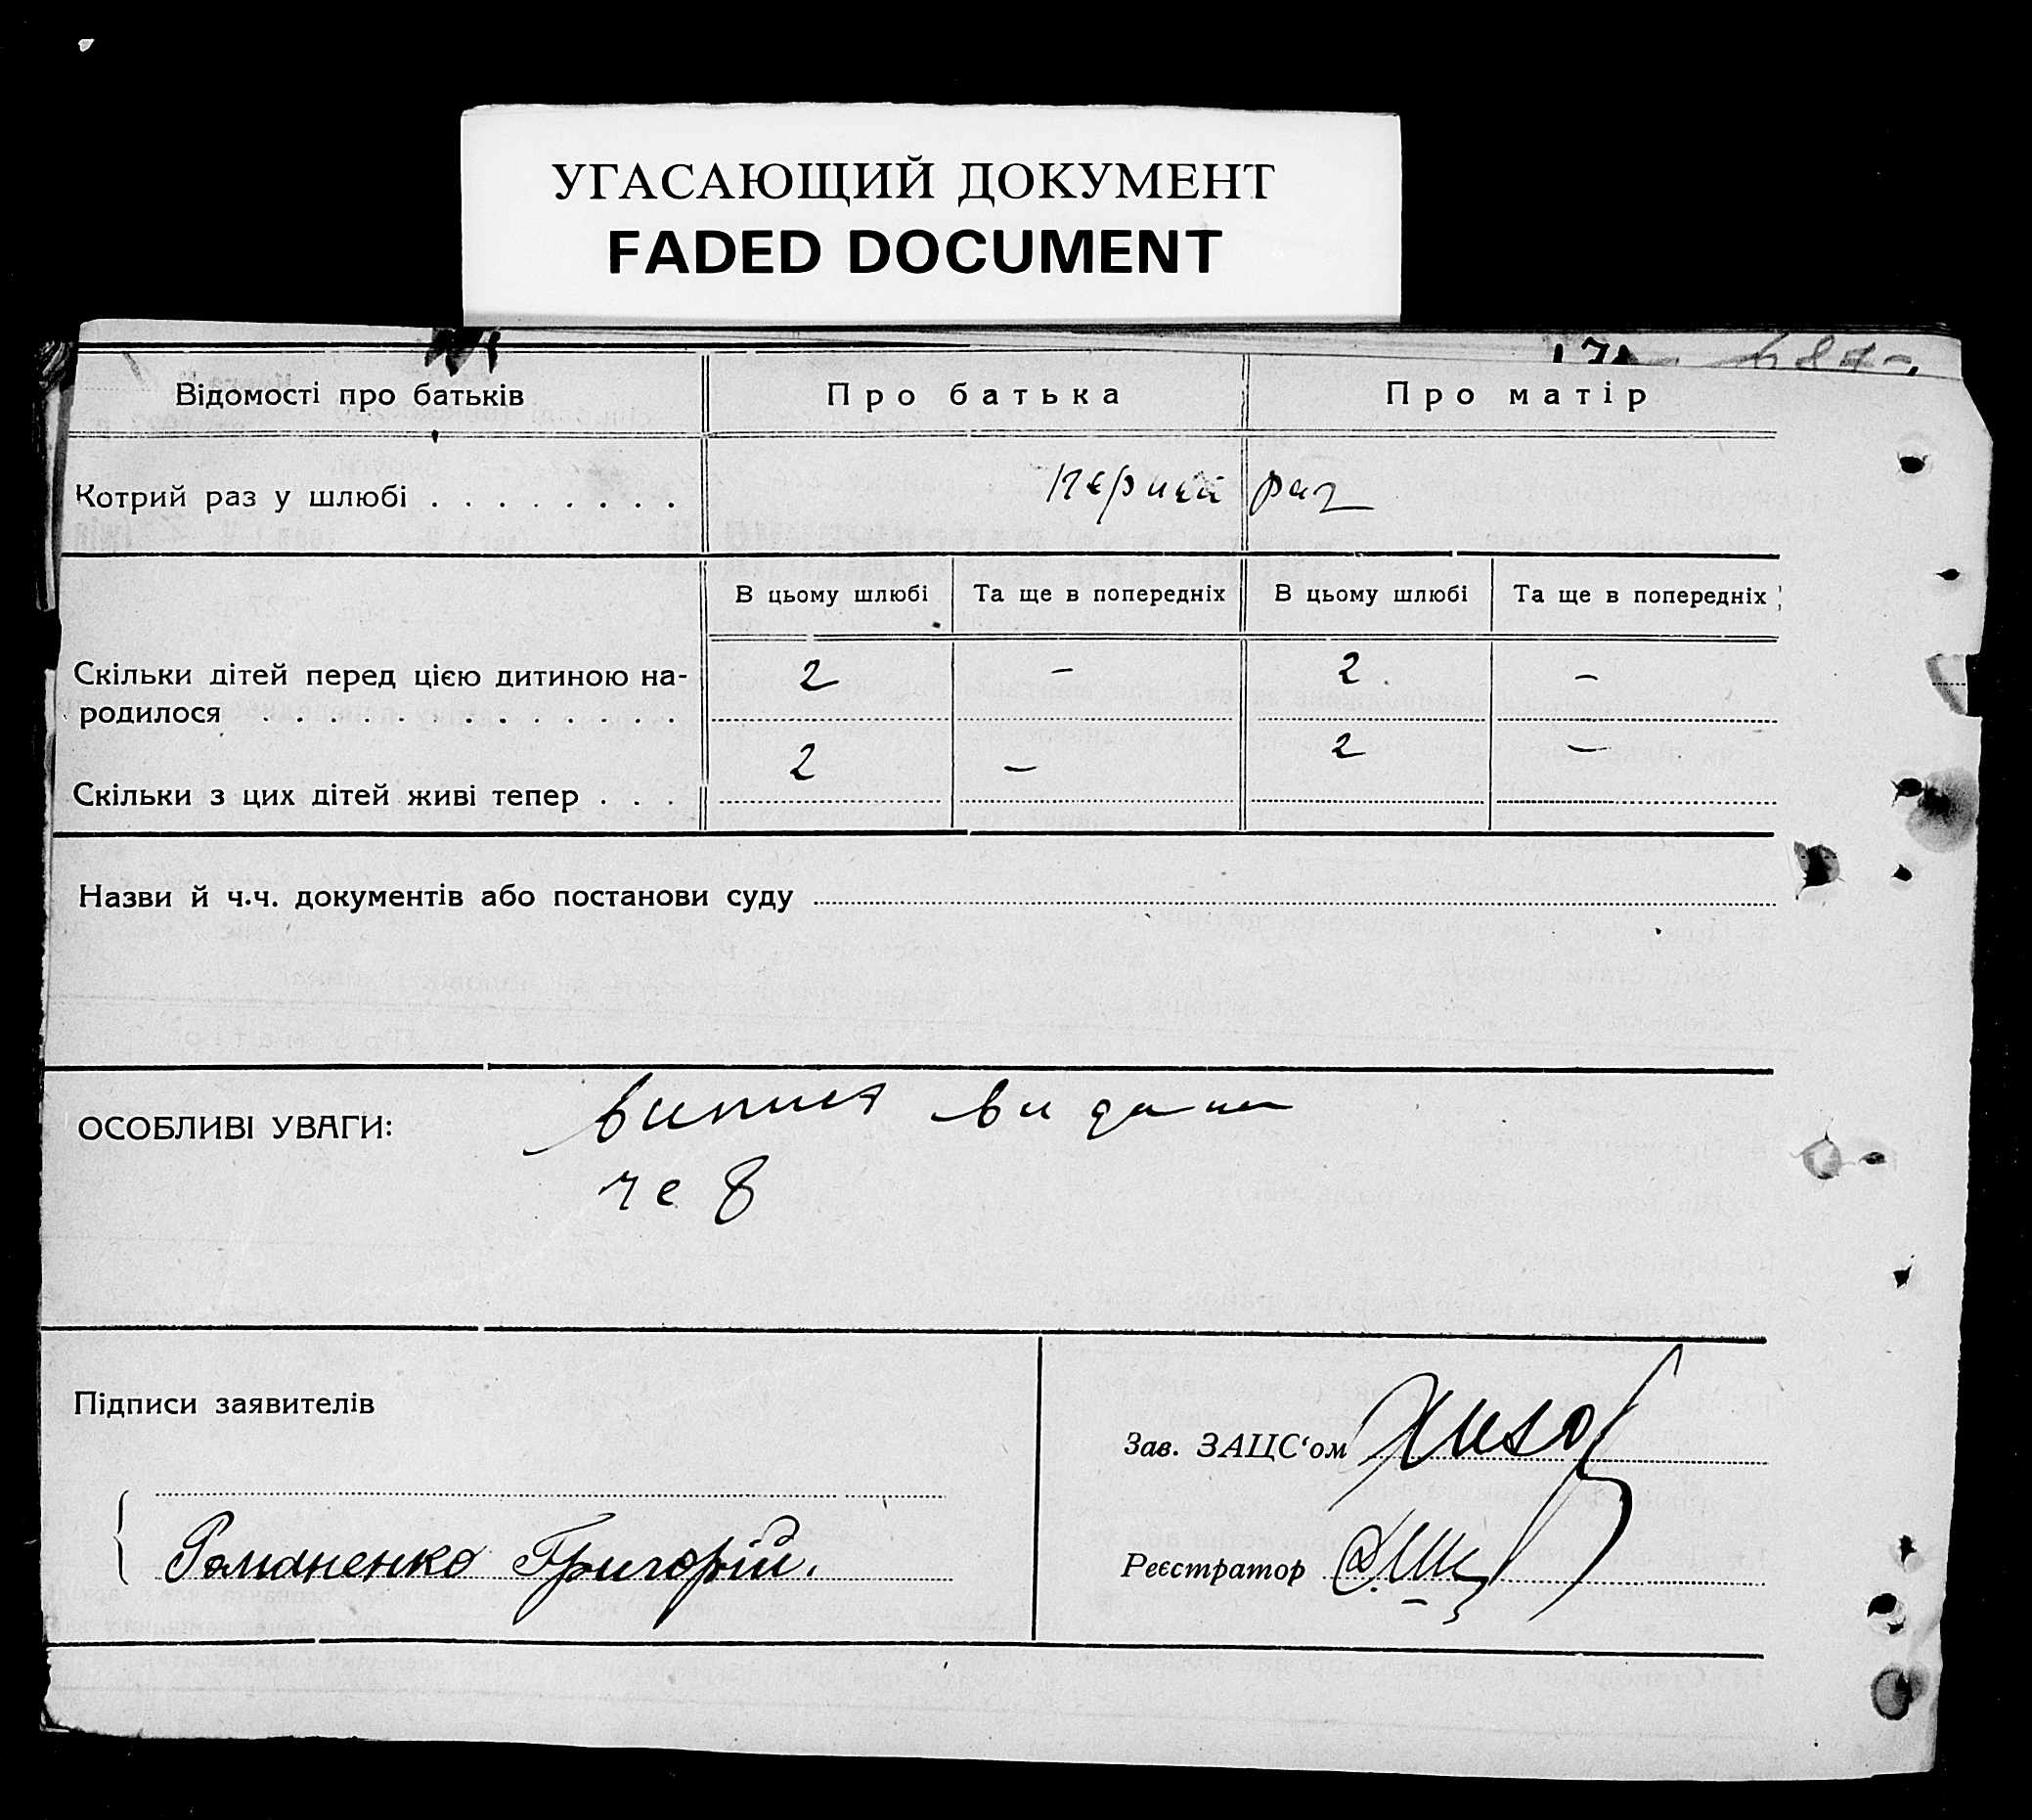 УГАСАЮЩИЙ ДОКУМЕНТ
FADED DOCUMENT
Відомості про батьків Про батька Про матір
Котрий раз у шлюбі . . . . . . . . перший раз
В цьому шлюбі Та ще в попередніх В цьому шлюбі Та ще в попередніх
Скільки дітей перед цією дитиною на- 2 – 2 –
родилося . . . . . . . . . . . . .
Скільки з цих дітей живі тепер . . . 2 – 2 –
Назви й ч.ч. документів або постанови суду
ОСОБЛИВІ УВАГИ:
че 8
Підписи заявителів
Зав. ЗАЦС‘ом
Романенко Григорій.
Реєстратор